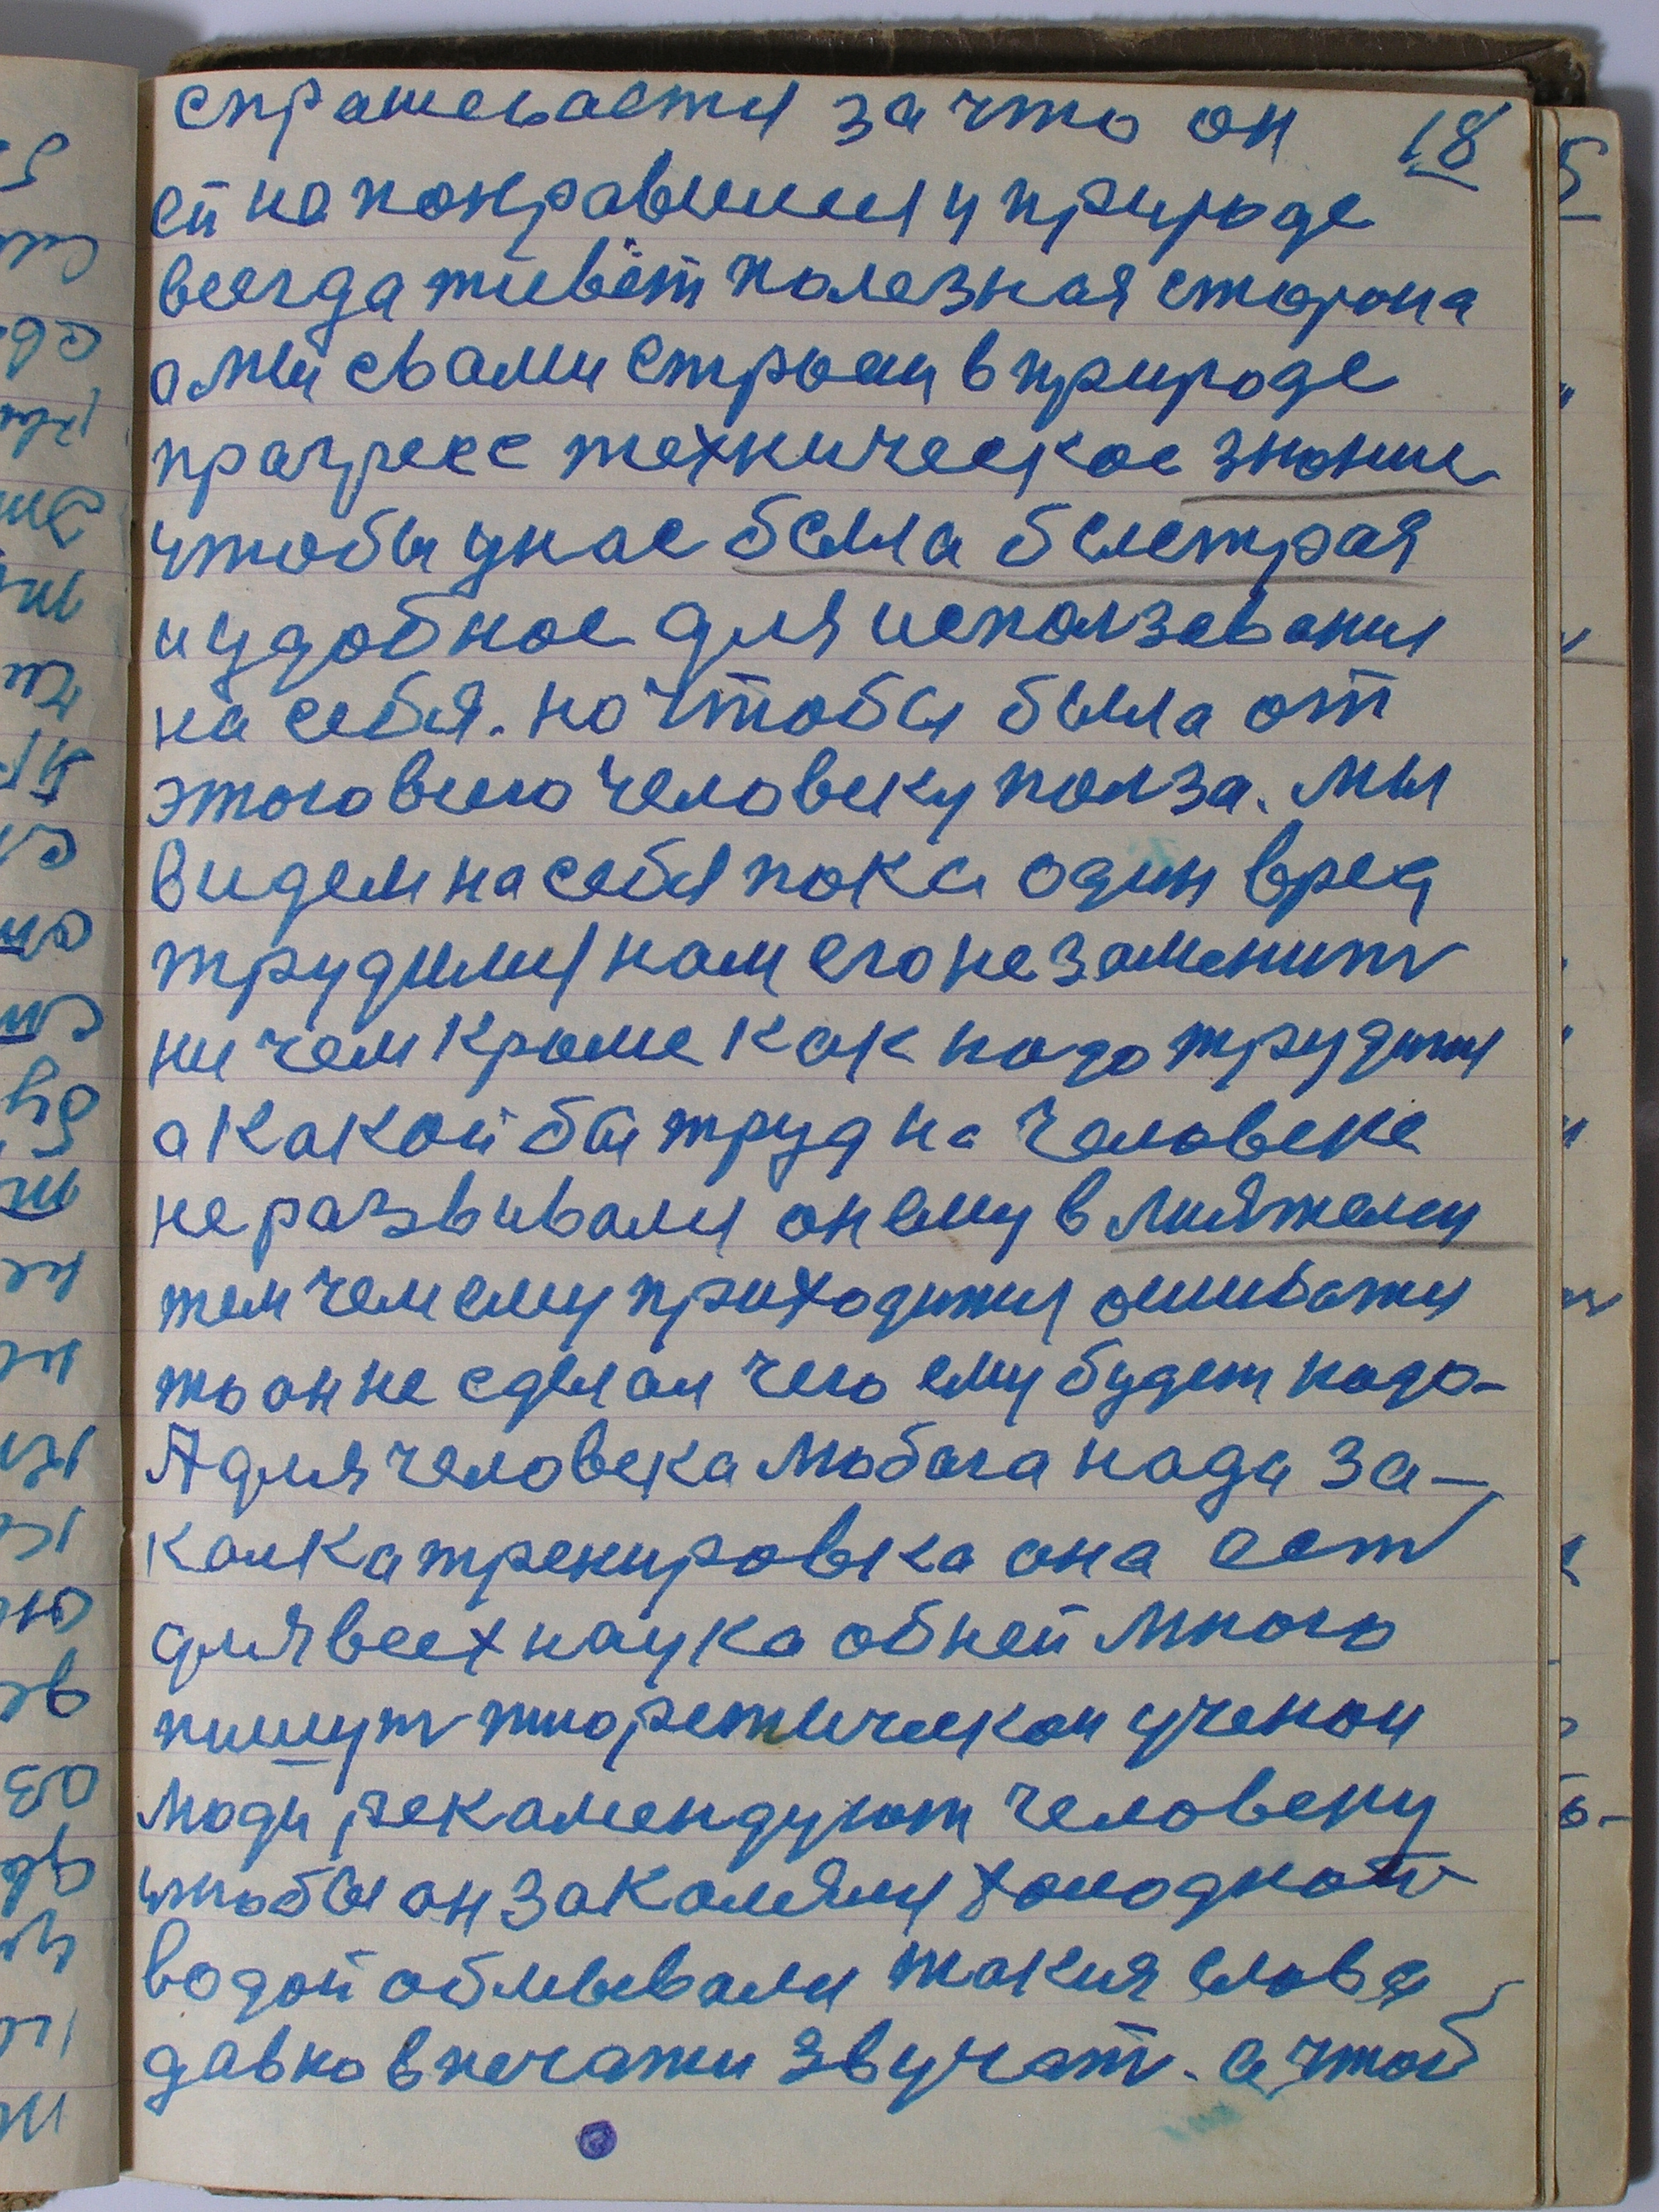 спрашевается за что он 18
ей не понравился у природе
всегда живёт полезная сторона
а мы свами строим в природе
прагресс техническое знание
чтобы унас была быстрая
и удобное для исползования
на себя. но чтобы была от
этого всего человеку полза. мы
видем на себя пока один вред
трудимся нам его не заменить
ни чем кроме как надо трудится
а какой бы труд на человеке
не развивался он ему в лияжелей
тем чем ему приходится ошибатся
то он не сделал чего ему будет надо-
А для человека любога нада за-
калка тренировка она есть
для всех наука об ней много
пишут тиоретическои ученои
люди рекамендуют человеку
чтобы он закалялся холодной
водой обмывался такия слова
давно впечати звучат. а чтоб